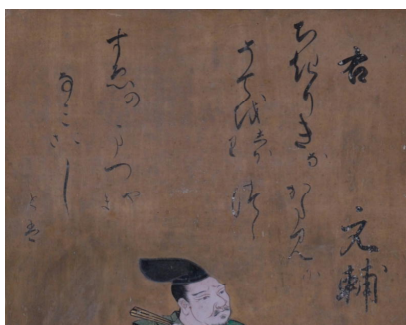 右 元輔
ちきりきな かたみに
そてをしほり つゝ
すゑの まつやま
なみこさし とは